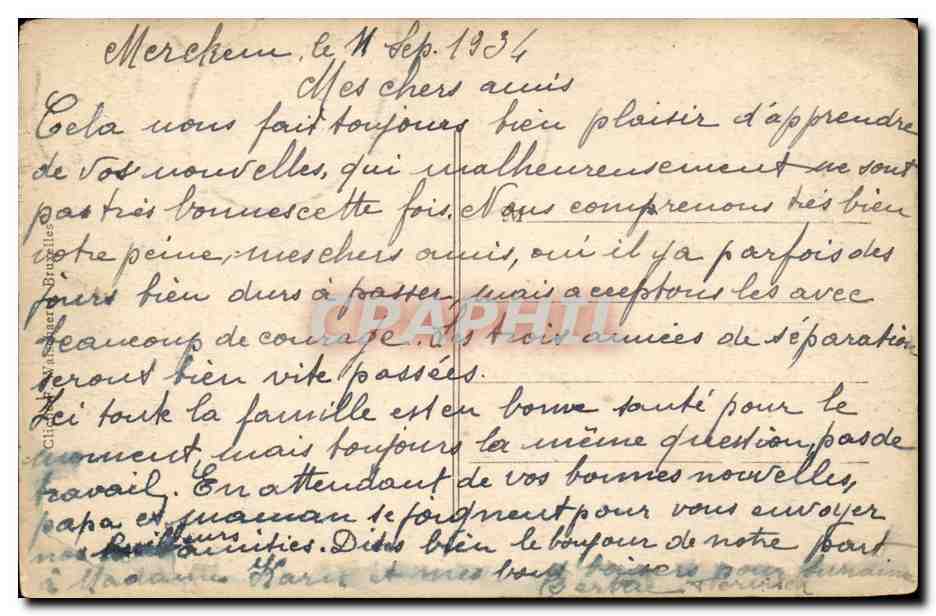 Merckem, le 11 Sep. 1934
Mes chers amis
Cela nous fait toujours bien plaisir d'apprendre
de vos nouvelles, qui malheureusement ne sont
pas très bonnes cette fois. Nous comprenons très bien
votre peine, mes chers amis, oui il y a parfois des
jours bien durs à passer, mais acceptons les avec
beaucoup de courage. Les trois années de séparation
seront bien vite passées.
Ici toute la famille est en bonne santé pour le
moment, mais toujours la même question, pas de
travail. En attendant de vos bonnes nouvelles,
papa et maman se joignent pour vous envoyer
nos meilleurs amitiés. Dites bien le bonjour de notre part
à Madame et mes bons baisers pour
CPAPHIL
Bruxelles